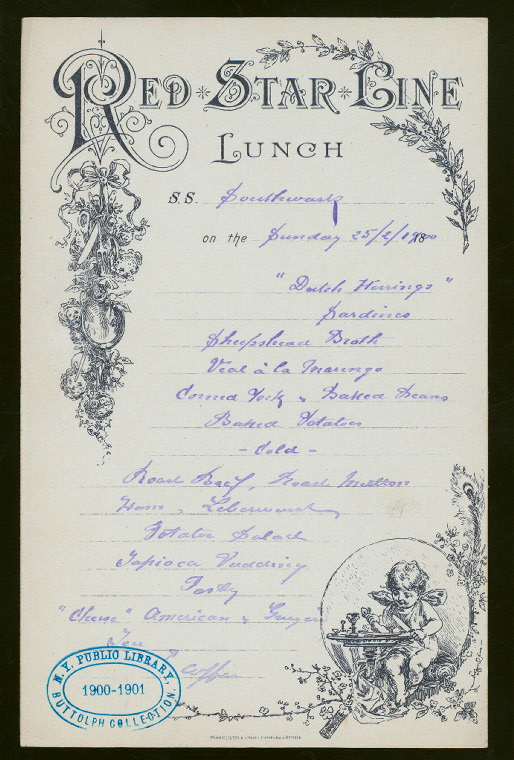 Red Star Line
Lunch
S.S. Southwark
on the Sunday 25/2/1900 18
"Dutch Herrings"
Sardines
Sheepshead Broth
Veal à la Marengo
Corned Pork & Baked Beans
Baked Potatoes
- Cold -
Roast Beef, Roast Mutton
Ham, Leberwurst
Potatoe Salad
Tapioca Pudding
Pastry
"Cheese" American &
Tea
Coffee
N.Y. PUBLIC LIBRARY,
1900-1901
BUTTOLPH COLLECTION.